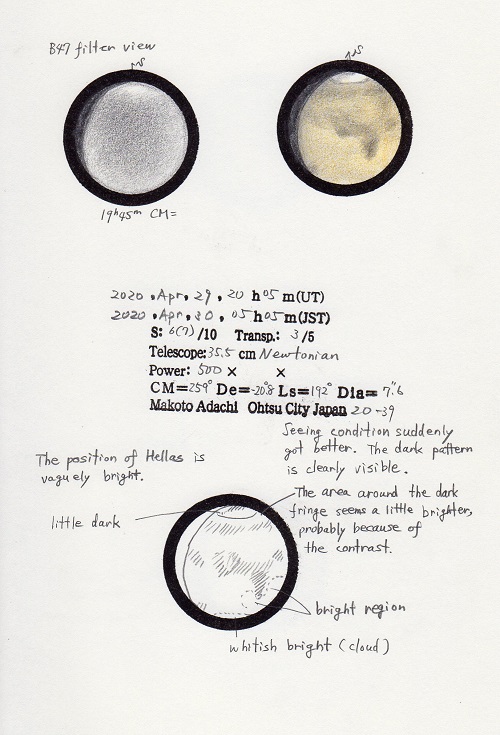 B47 filter view
19h45m CM=
2020, Apr, 29, 20 h 05 m(UT)
2020, Apr, 30, 05 h 05 m(JST)
S: 6(7)/10 Transp.: 3/5
Telescope: 35.5 cm Newtonian
Power: 500 × ×
CM=259° De=-20°.8 Ls=192° Dia=7".6
Makoto Adachi Ohtsu City Japan 20-39
Seeing condition suddenly
got better. The dark pattern
is clearly visible.
The position of Hellas is
vaguely bright.
The area around the dark
fringe seems a little brighter,
probably because of
the contrast.
little dark
bright region
whitish bright (cloud)